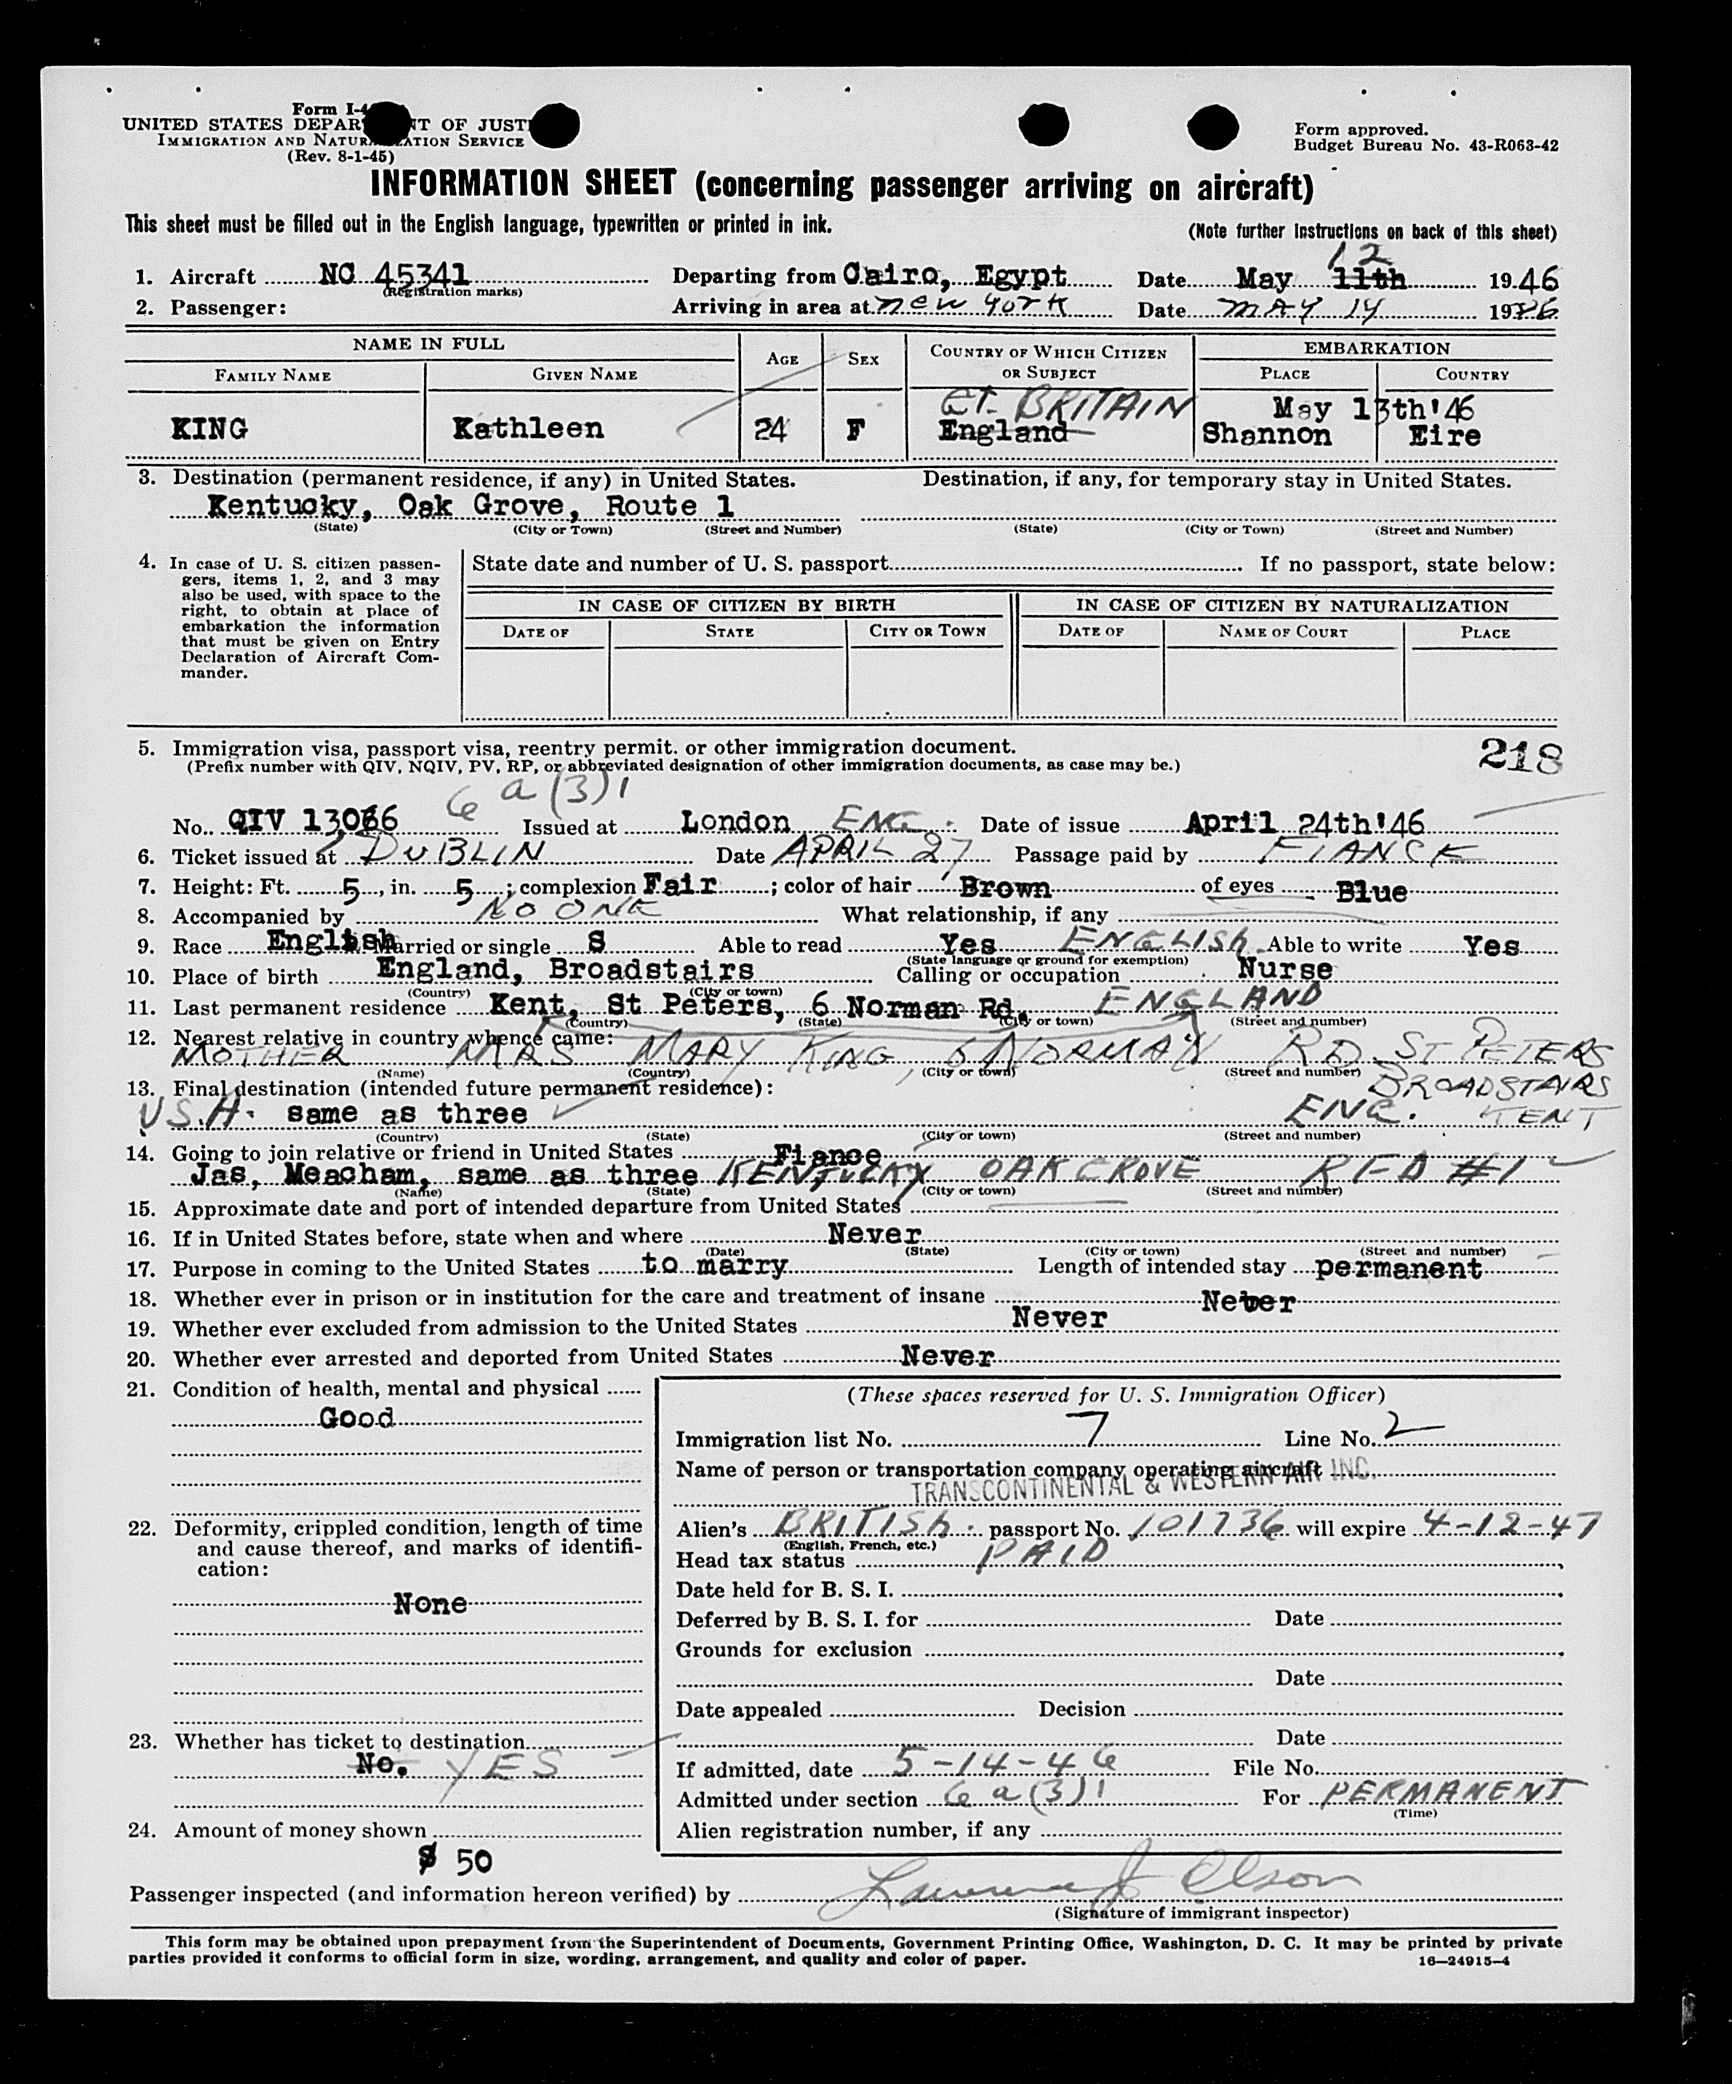 Form I-4
UNITED STATES DEPAR T OF JUST
IMMIGRATION AND NATUR ATION SERVICE
(Rev. 8-1-45)
Form approved.
Budget Bureau No. 43-R063-42
INFORMATION SHEET (concerning passenger arriving on aircraft)
This sheet must be filled out in the English language, typewritten or printed in ink.
(Note further instructions on back of this sheet)
12
1. Aircraft NC 45341 Departing from Cairo, Egypt Date May 11th 1946
(Registration marks)
2. Passenger: Arriving in area at New York Date MAY 14 19
NAME IN FULL AGE SEX COUNTRY OF WHICH CITIZEN OR SUBJECT EMBARKATION
FAMILY NAME GIVEN NAME PLACE COUNTRY
GT. BRITAIN May 13th'46
KING Kathleen 24 F England Shannon Eire
3. Destination (permanent residence, if any) in United States. Destination, if any, for temporary stay in United States.
Kentucky, Oak Grove, Route 1
(State) (City or Town) (Street and Number) (State) (City or Town) (Street and Number)
4. In case of U. S. citizen passen-
gers, items 1, 2, and 3 may
also be used, with space to the
right, to obtain at place of
embarkation the information
that must be given on Entry
Declaration of Aircraft Com-
mander.
State date and number of U. S. passport If no passport, state below:
IN CASE OF CITIZEN BY BIRTH IN CASE OF CITIZEN BY NATURALIZATION
DATE OF STATE CITY OR TOWN DATE OF NAME OF COURT PLACE
5. Immigration visa, passport visa, reentry permit. or other immigration document.
(Prefix number with QIV, NQIV, PV, RP, or abbreviated designation of other immigration documents, as case may be.)
218
6 a (3) 1
No. QIV 13066 Issued at London ENG. Date of issue April 24th'46
6. Ticket issued at DUBLIN Date APRIL 27 Passage paid by FIANCE
7. Height: Ft. 5, in. 5; complexion Fair; color of hair Brown of eyes Blue
8. Accompanied by NO ONE What relationship, if any
9. Race English Married or single S Able to read Yes ENGLISH Able to write Yes
(State language or ground for exemption)
10. Place of birth England, Broadstairs Calling or occupation Nurse
(Country) (City or town)
11. Last permanent residence Kent, St Peters, 6 Norman Rd. ENGLAND
(Country) (State) (City or town) (Street and number)
12. Nearest relative in country whence came:
MOTHER MRS MARY KING, 6 NORMAN RD ST PETERS
(Name) (Country) (City or town) (Street and number) BROADSTAIRS
13. Final destination (intended future permanent residence):
U.S.A. same as three ENG. KENT
(Country) (State) (City or town) (Street and number)
14. Going to join relative or friend in United States Fiance
Jas, Meacham, same as three KENTUCKY OAK GROVE RFD #1
(Name) (State) (City or town) (Street and number)
15. Approximate date and port of intended departure from United States
16. If in United States before, state when and where Never
(Date) (State) (City or town) (Street and number)
17. Purpose in coming to the United States to marry Length of intended stay permanent
18. Whether ever in prison or in institution for the care and treatment of insane Never
19. Whether ever excluded from admission to the United States Never
20. Whether ever arrested and deported from United States Never
21. Condition of health, mental and physical
Good
22. Deformity, crippled condition, length of time
and cause thereof, and marks of identifi-
cation:
None
23. Whether has ticket to destination
No. YES
24. Amount of money shown
$ 50
(These spaces reserved for U. S. Immigration Officer)
Immigration list No. 7 Line No. 2
Name of person or transportation company operating aircraft
TRANSCONTINENTAL & WESTERN AIR INC.
Alien's BRITISH passport No. 101736 will expire 4-12-47
(English, French, etc.)
Head tax status PAID
Date held for B. S. I.
Deferred by B. S. I. for Date
Grounds for exclusion
Date
Date appealed Decision
Date
If admitted, date 5-14-46 File No.
Admitted under section 6 a (3) 1 For PERMANENT
(Time)
Alien registration number, if any
Passenger inspected (and information hereon verified) by Lawrence J Olson
(Signature of immigrant inspector)
This form may be obtained upon prepayment from the Superintendent of Documents, Government Printing Office, Washington, D. C. It may be printed by private
parties provided it conforms to official form in size, wording, arrangement, and quality and color of paper. 16—24915-4